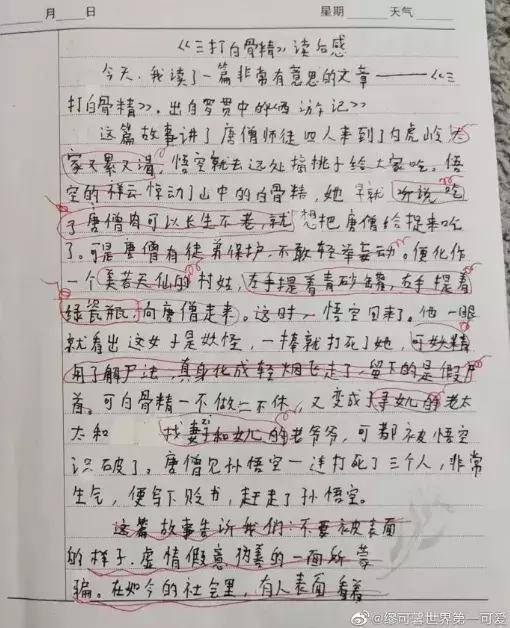 月 日 星期 天气
《三打白骨精》读后感
今天,我读了一篇非常有意思的文章——《三
打白骨精》。出自罗贯中的《西游记》
这篇故事讲了唐僧师徒四人来到了白虎岭,大
家又累又渴,悟空就去远处摘桃子给大家吃。悟
空的祥云惊动了山中的白骨精,她早就听说吃
了唐僧肉可以长生不老,就想把唐僧给捉来吃
了。可是唐僧有徒弟保护,不敢轻举妄动。便化作
一个美若天仙的村姑,左手提着青砂罐,右手提着
绿瓷瓶,向唐僧走来。这时,悟空回来了。他一眼
就看出这女子是妖怪,一棒就打死了她,可妖精
用了解尸法,真身化成轻烟飞走了,留下的是假尸
首。可白骨精一不做二不休,又变成了寻女儿的老太
太和 找妻子和女儿的老爷爷,可都被悟空
识破了。唐僧见孙悟空一连打死了三个人,非常
生气,便写下贬书,赶走了孙悟空。
这篇故事告诉我们:不要被表面
的样子,虚情假意,伪善的一面所蒙
骗。在如今的社会里,有人表面看着
@缪可馨世界第一可爱